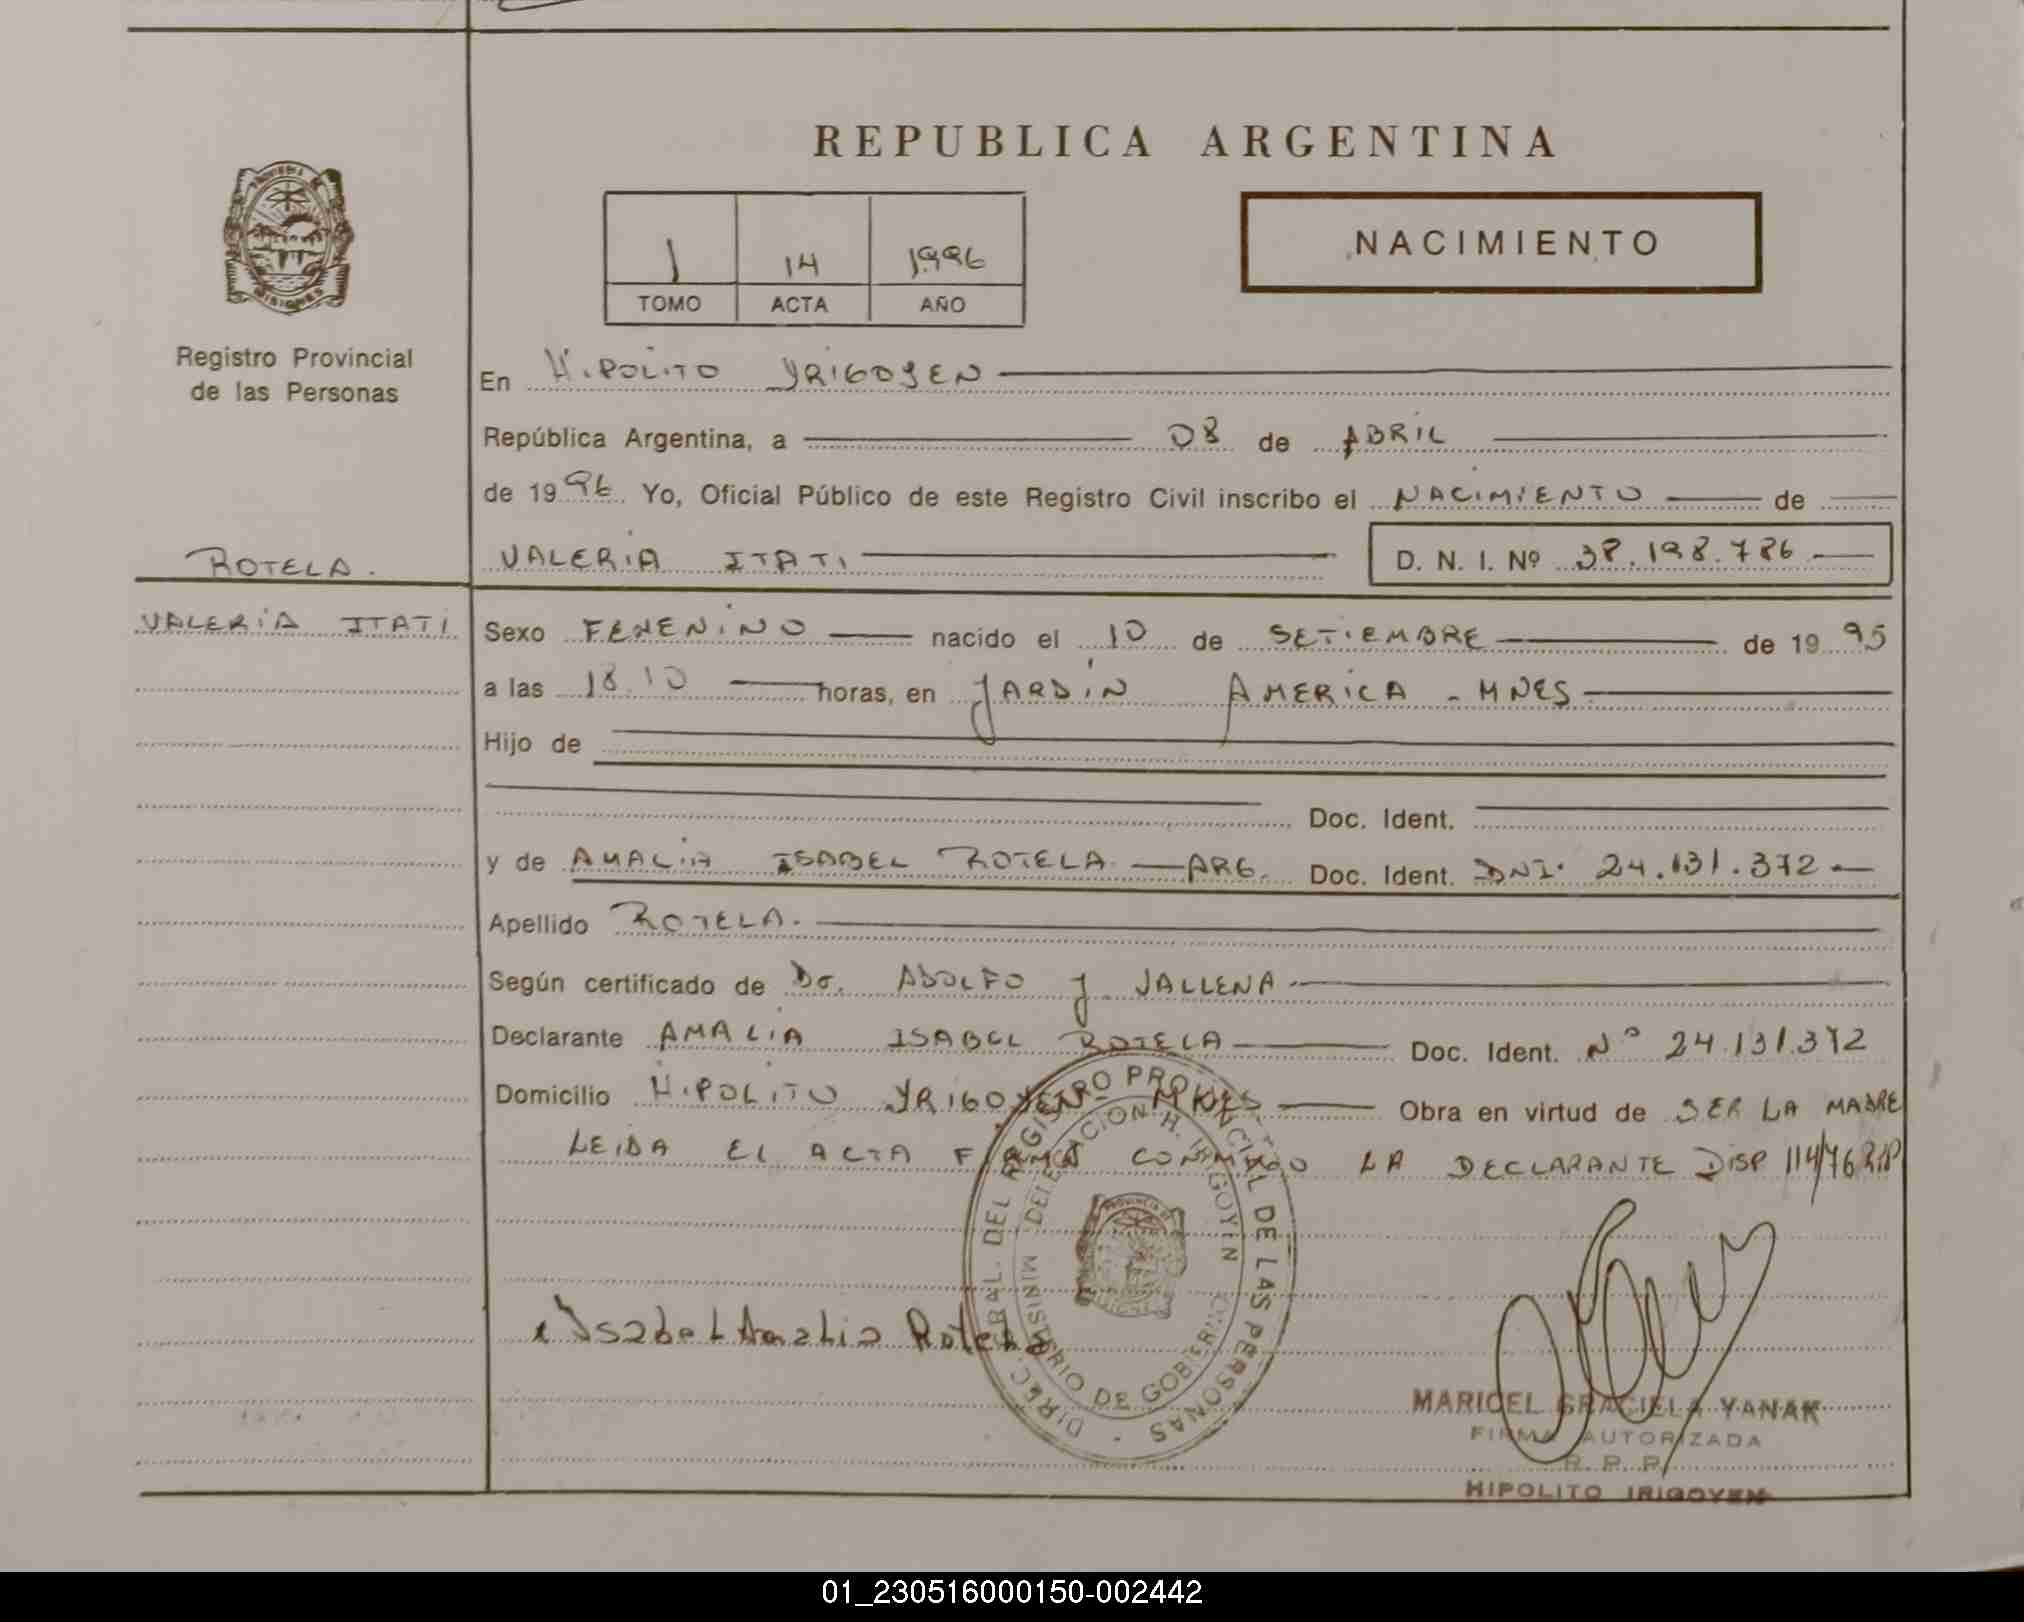 REPUBLICA ARGENTINA
1 14 1996
TOMO ACTA AÑO
NACIMIENTO
MISIONES
Registro Provincial
de las Personas
En HIPOLITO YRIGOYEN
República Argentina, a 08 de ABRIL
de 1996 Yo, Oficial Público de este Registro Civil inscribo el NACIMIENTO de
ROTELA.
VALERIA ITATI
VALERIA ITATI D. N. I. Nº 38.198.786
Sexo FEMENINO nacido el 10 de SETIEMBRE de 1995
a las 18.10 horas, en JARDIN AMERICA - MNES
Hijo de
Doc. Ident.
y de AMALIA ISABEL ROTELA - ARG. Doc. Ident. DNI. 24.131.372
Apellido ROTELA.
Según certificado de Dr. ADOLFO J. JALLENA
Declarante AMALIA ISABEL ROTELA Doc. Ident. Nº 24.131.372
Domicilio HIPOLITO YRIGOYEN - MNES Obra en virtud de SER LA MADRE
LEIDA EL ACTA FIRMA CONMIGO LA DECLARANTE DISP 114/76 RIP
DIREC. GRAL. DEL REGISTRO PROVINCIAL DE LAS PERSONAS
MINISTERIO DE GOBIERNO
DELEGACION H. IRIGOYEN
Isabel Amalia Rotela
MARICEL GRACIELA YANAK
FIRMA AUTORIZADA
R. P. P.
HIPOLITO IRIGOYEN
01_230516000150-002442